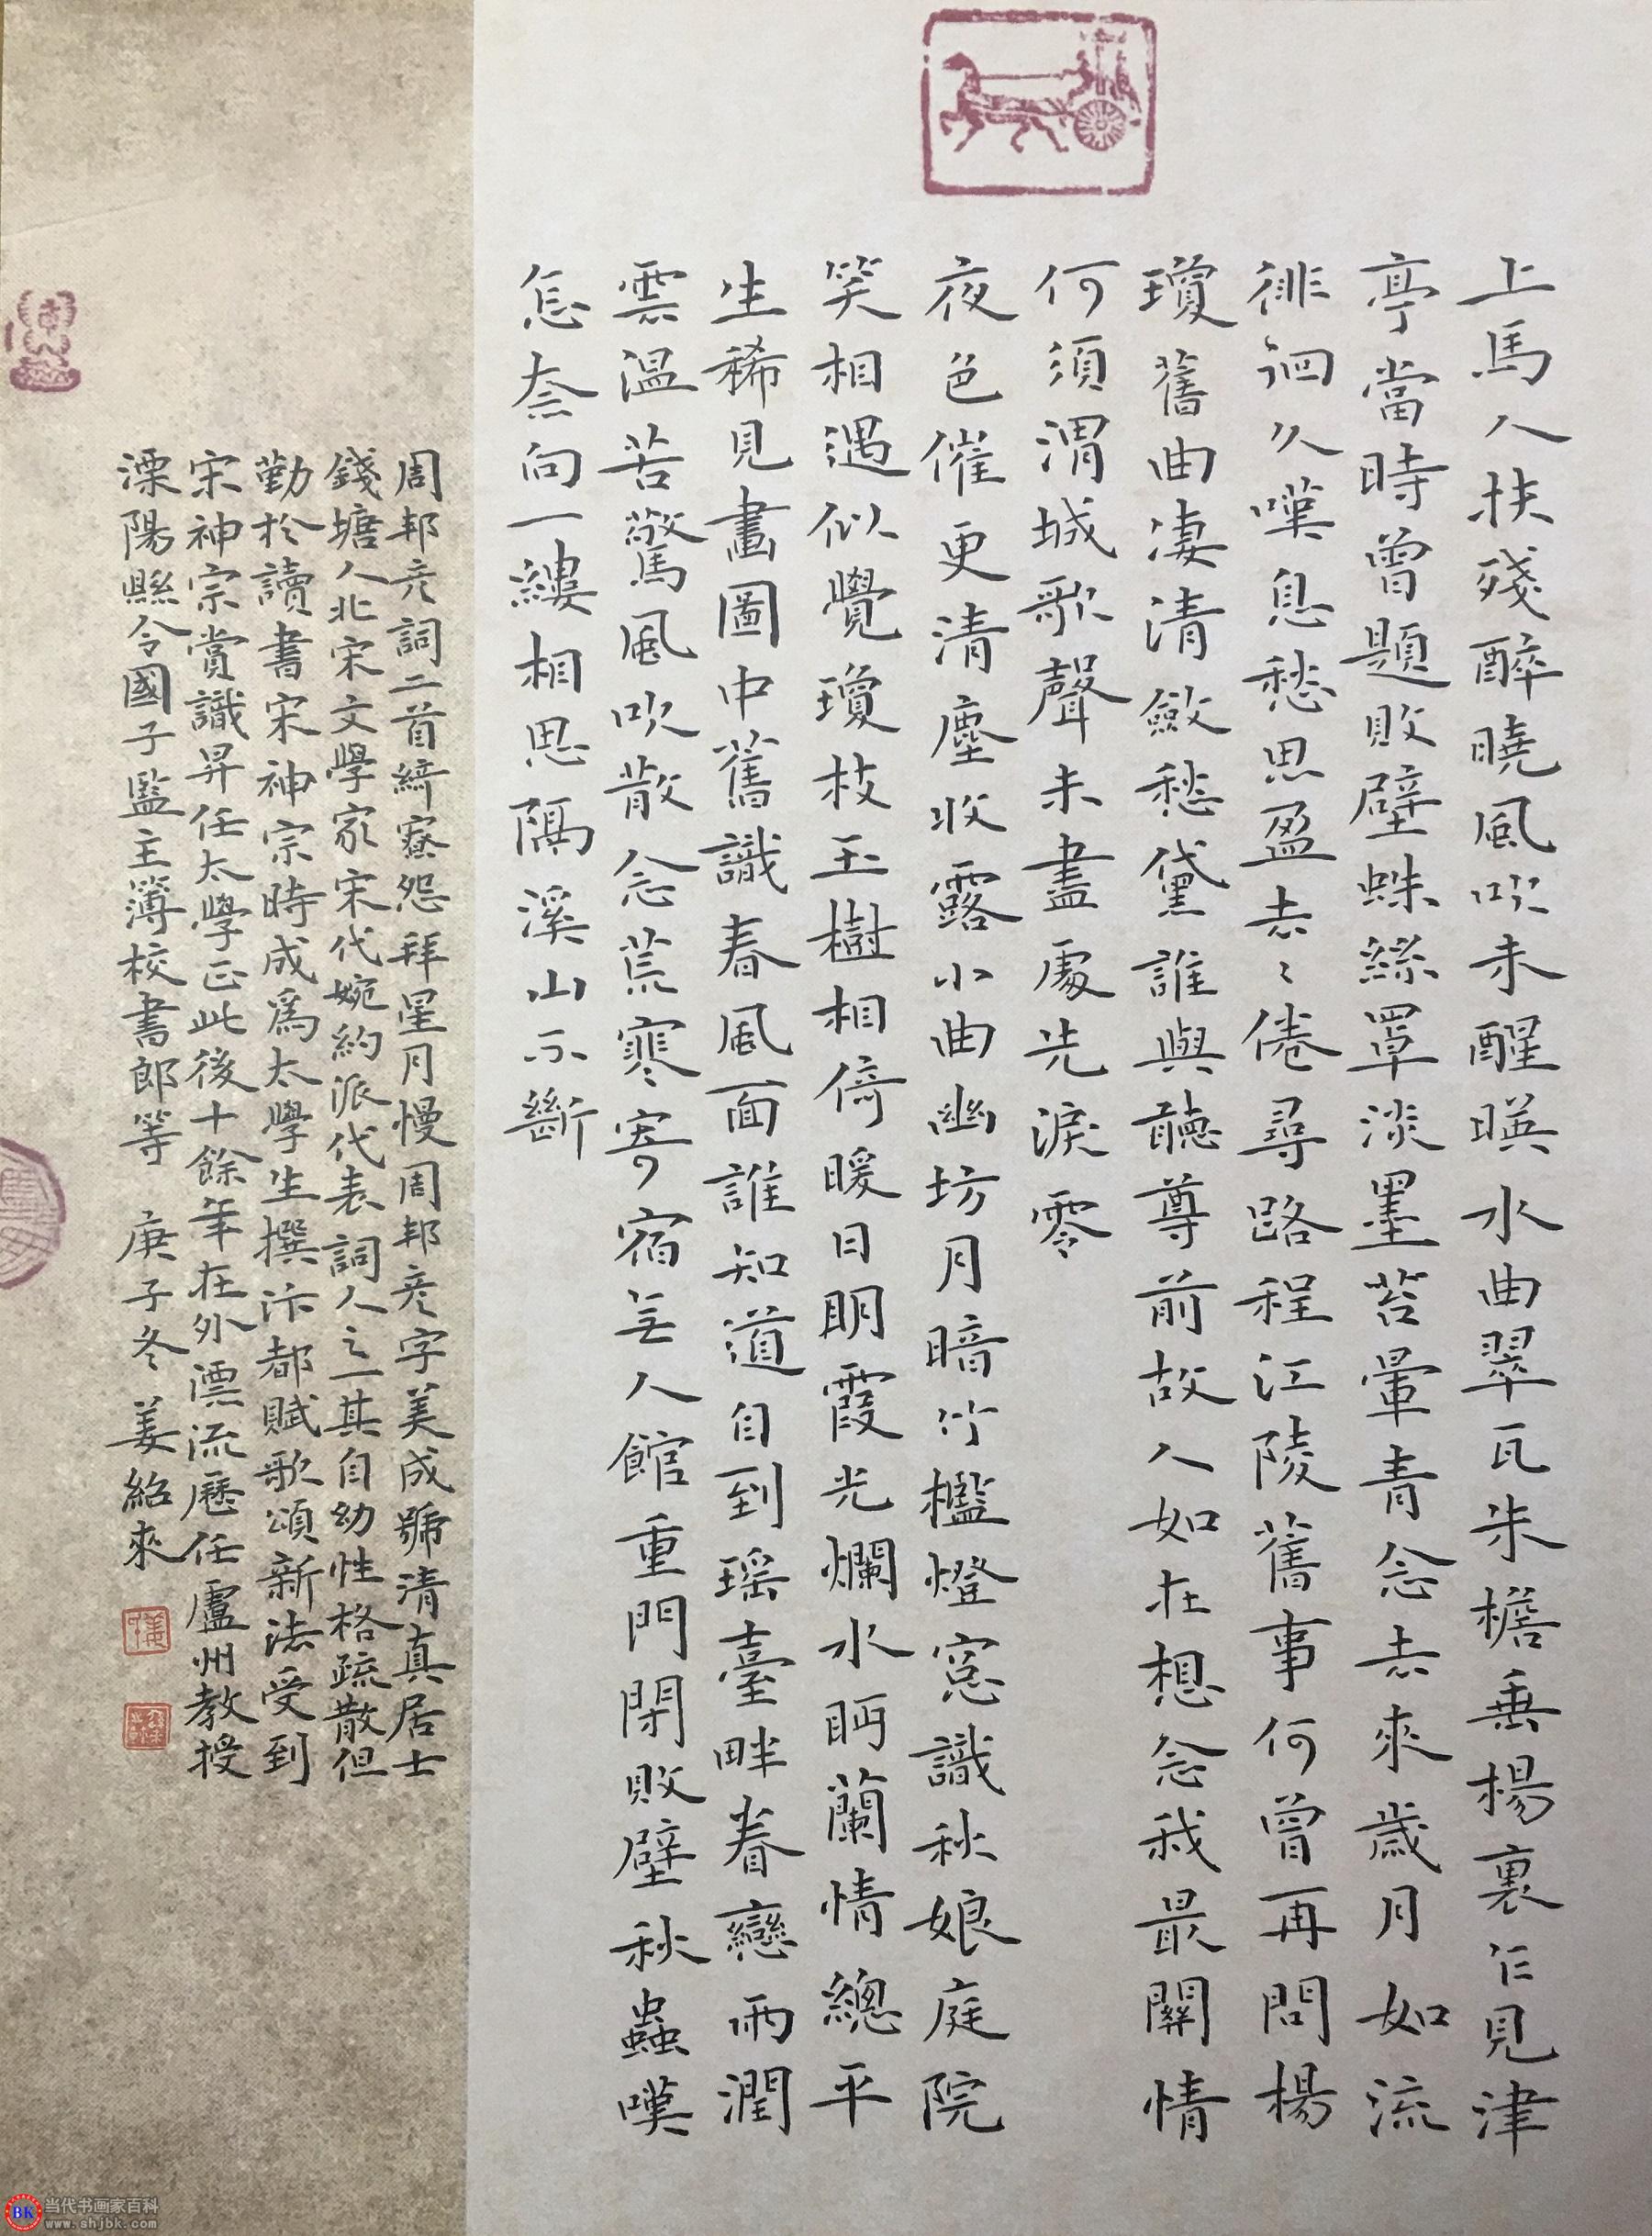 上馬人扶殘醉曉風吹未醒暎水曲翠瓦朱檐垂楊裏乍見津
亭當時曾題敗壁蛛絲罩淡墨苔暈青念去來歲月如流
徘徊久嘆息愁思盈去〻倦尋路程江陵舊事何曾再問楊
瓊舊曲凄清斂愁黛誰與聽尊前故人如在想念我最關情
何須渭城歌聲未盡處先淚零
夜色催更清塵收露小曲幽坊月暗竹檻燈窓識秋娘庭院
笑相遇似覺瓊枝玉樹相倚暖日明霞光爛水眄蘭情總平
生稀見畫圖中舊識春風面誰知道自到瑶臺畔眷戀雨潤
雲溫苦驚風吹散念荒寒寄宿無人館重門閉敗壁秋蟲嘆
怎奈向一縷相思隔溪山不斷
周邦彦詞二首綺寮怨拜星月慢周邦彦字美成號清真居士
錢塘人北宋文學家宋代婉約派代表詞人之一其自幼性格疏散但
勤於讀書宋神宗時成爲太學生撰汴都賦歌頌新法受到
宋神宗賞識昇任太學正此後十餘年在外漂流歷任廬州教授
溧陽縣令國子監主簿校書郎等 庚子冬 姜紹來
BK 当代书画家百科
www.shjbk.com